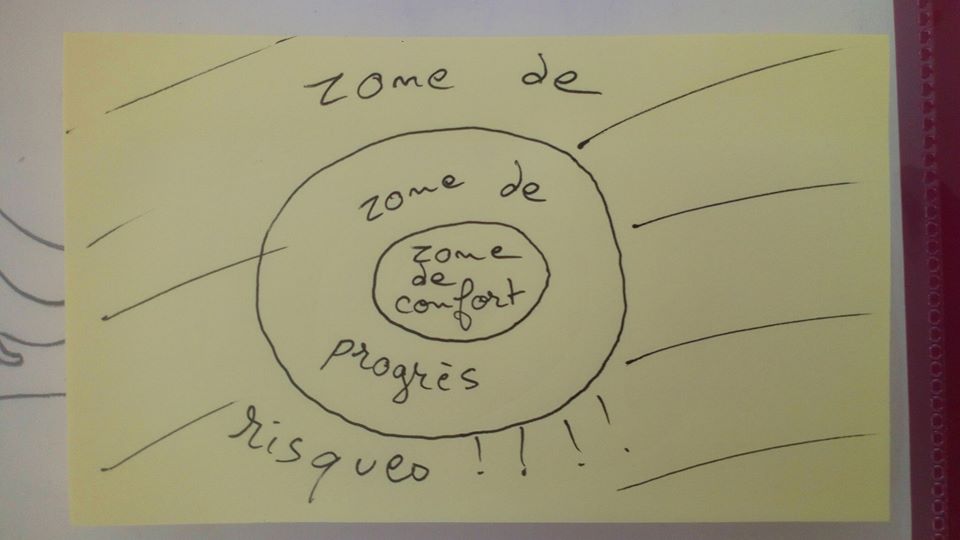 zone de
zone de
zone
de
confort
progrès
risques ! ! ! !